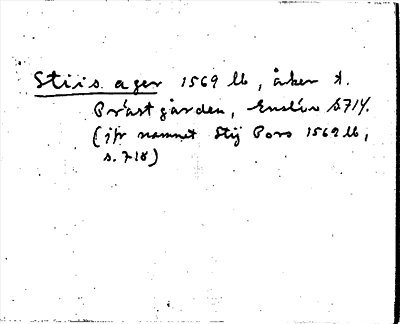 Stiis ager 1569 lb, åker t.
Prästgården, Enslöv s. 714.
(jfr namnet Stij Pors 1569 lb,
s. 718)